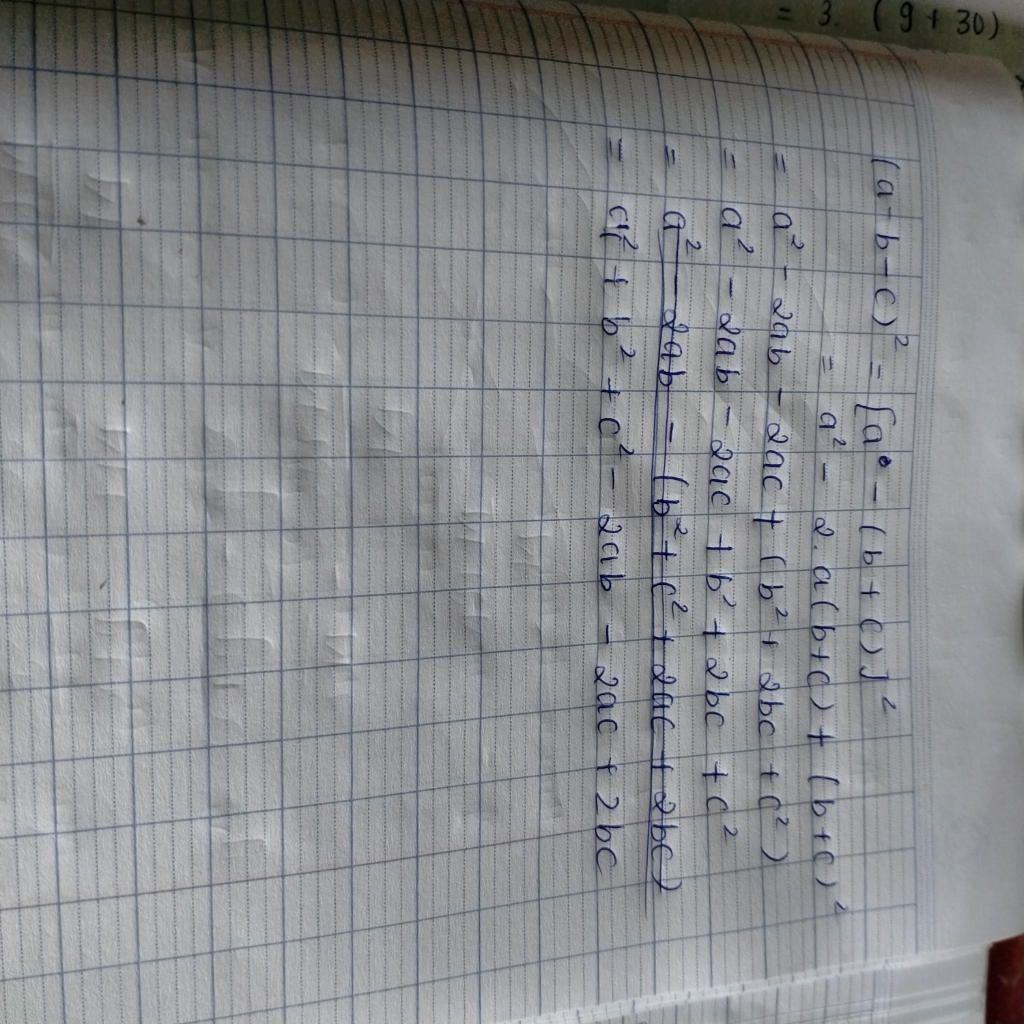 = 3. (9 + 30)
(a - b - c)² = [a - (b + c)]²
= a² - 2.a(b+c) + (b+c)²
= a² - 2ab - 2ac + (b² + 2bc + c²)
= a² - 2ab - 2ac + b² + 2bc + c²
= a² - 2ab - (b² + c² + 2ac + 2bc)
= a² + b² + c² - 2ab - 2ac + 2bc